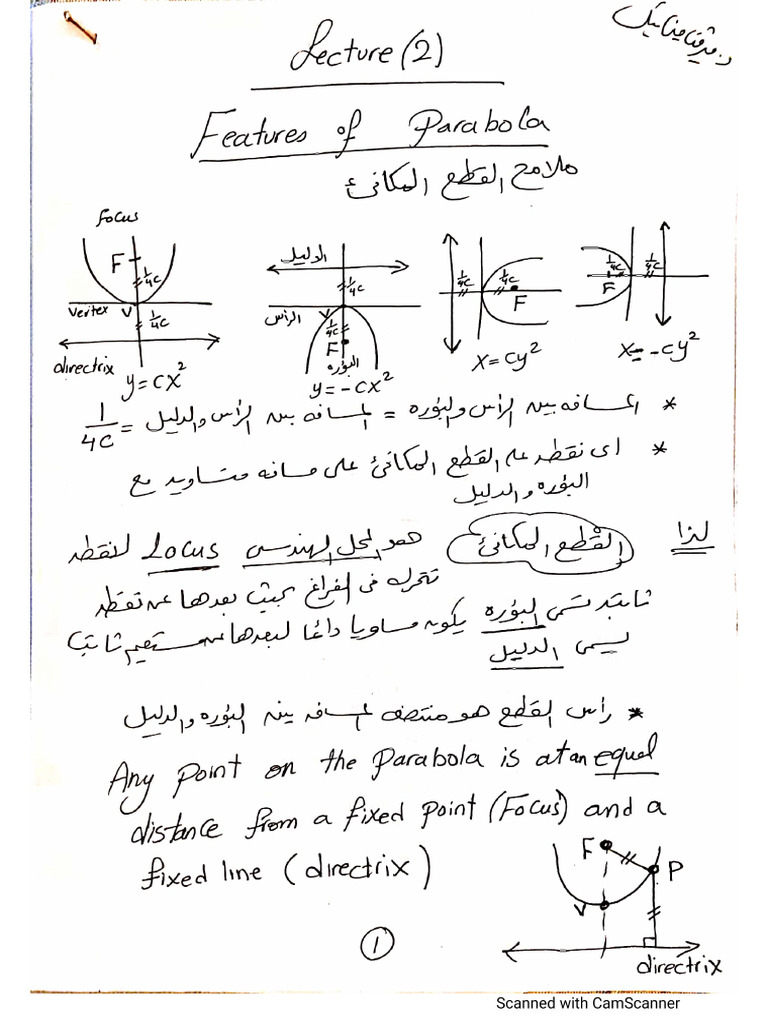 Lecture (2)
Features of Parabola
ملامح القطع المكافئ
Focus
F
1/4c
vertex
V
1/4c
directrix
y = cx²
الدليل
1/4c
الرأس
V
1/4c
F
البؤره
y = -cx²
1/4c
1/4c
F
x = cy²
1/4c
1/4c
F
x = -cy²
* المسافه بين الرأس والبؤره = المسافه بين الرأس والدليل = 1/4c
* اى نقطه على القطع المكافئ على مسافه متساويه مع
البؤره والدليل
لذا القطع المكافئ هو المحل الهندسى Locus لنقطه
تتحرك فى الفراغ بحيث بعدها عن نقطه
ثابته تسمى البؤره يكون مساويا دائما لبعدها عن مستقيم ثابت
يسمى الدليل
* رأس القطع هو منتصف المسافه بين البؤره والدليل
Any point on the Parabola is at an equal
distance from a fixed point (Focus) and a
fixed line (directrix)
F
P
V
directrix
1
Scanned with CamScanner